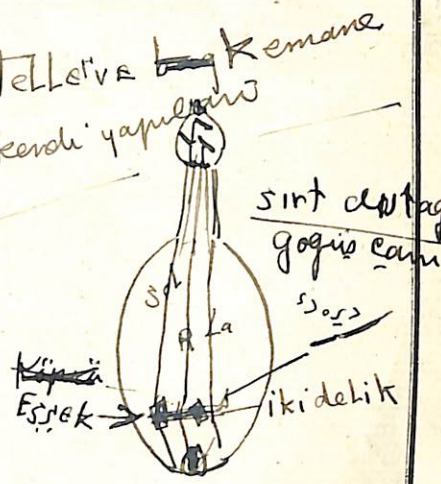 Teller ve Kemane
kendi yapıları
sırt dut ağ
göğüs çam
Sol
R
La
Köprü
Eşşek
iki delik